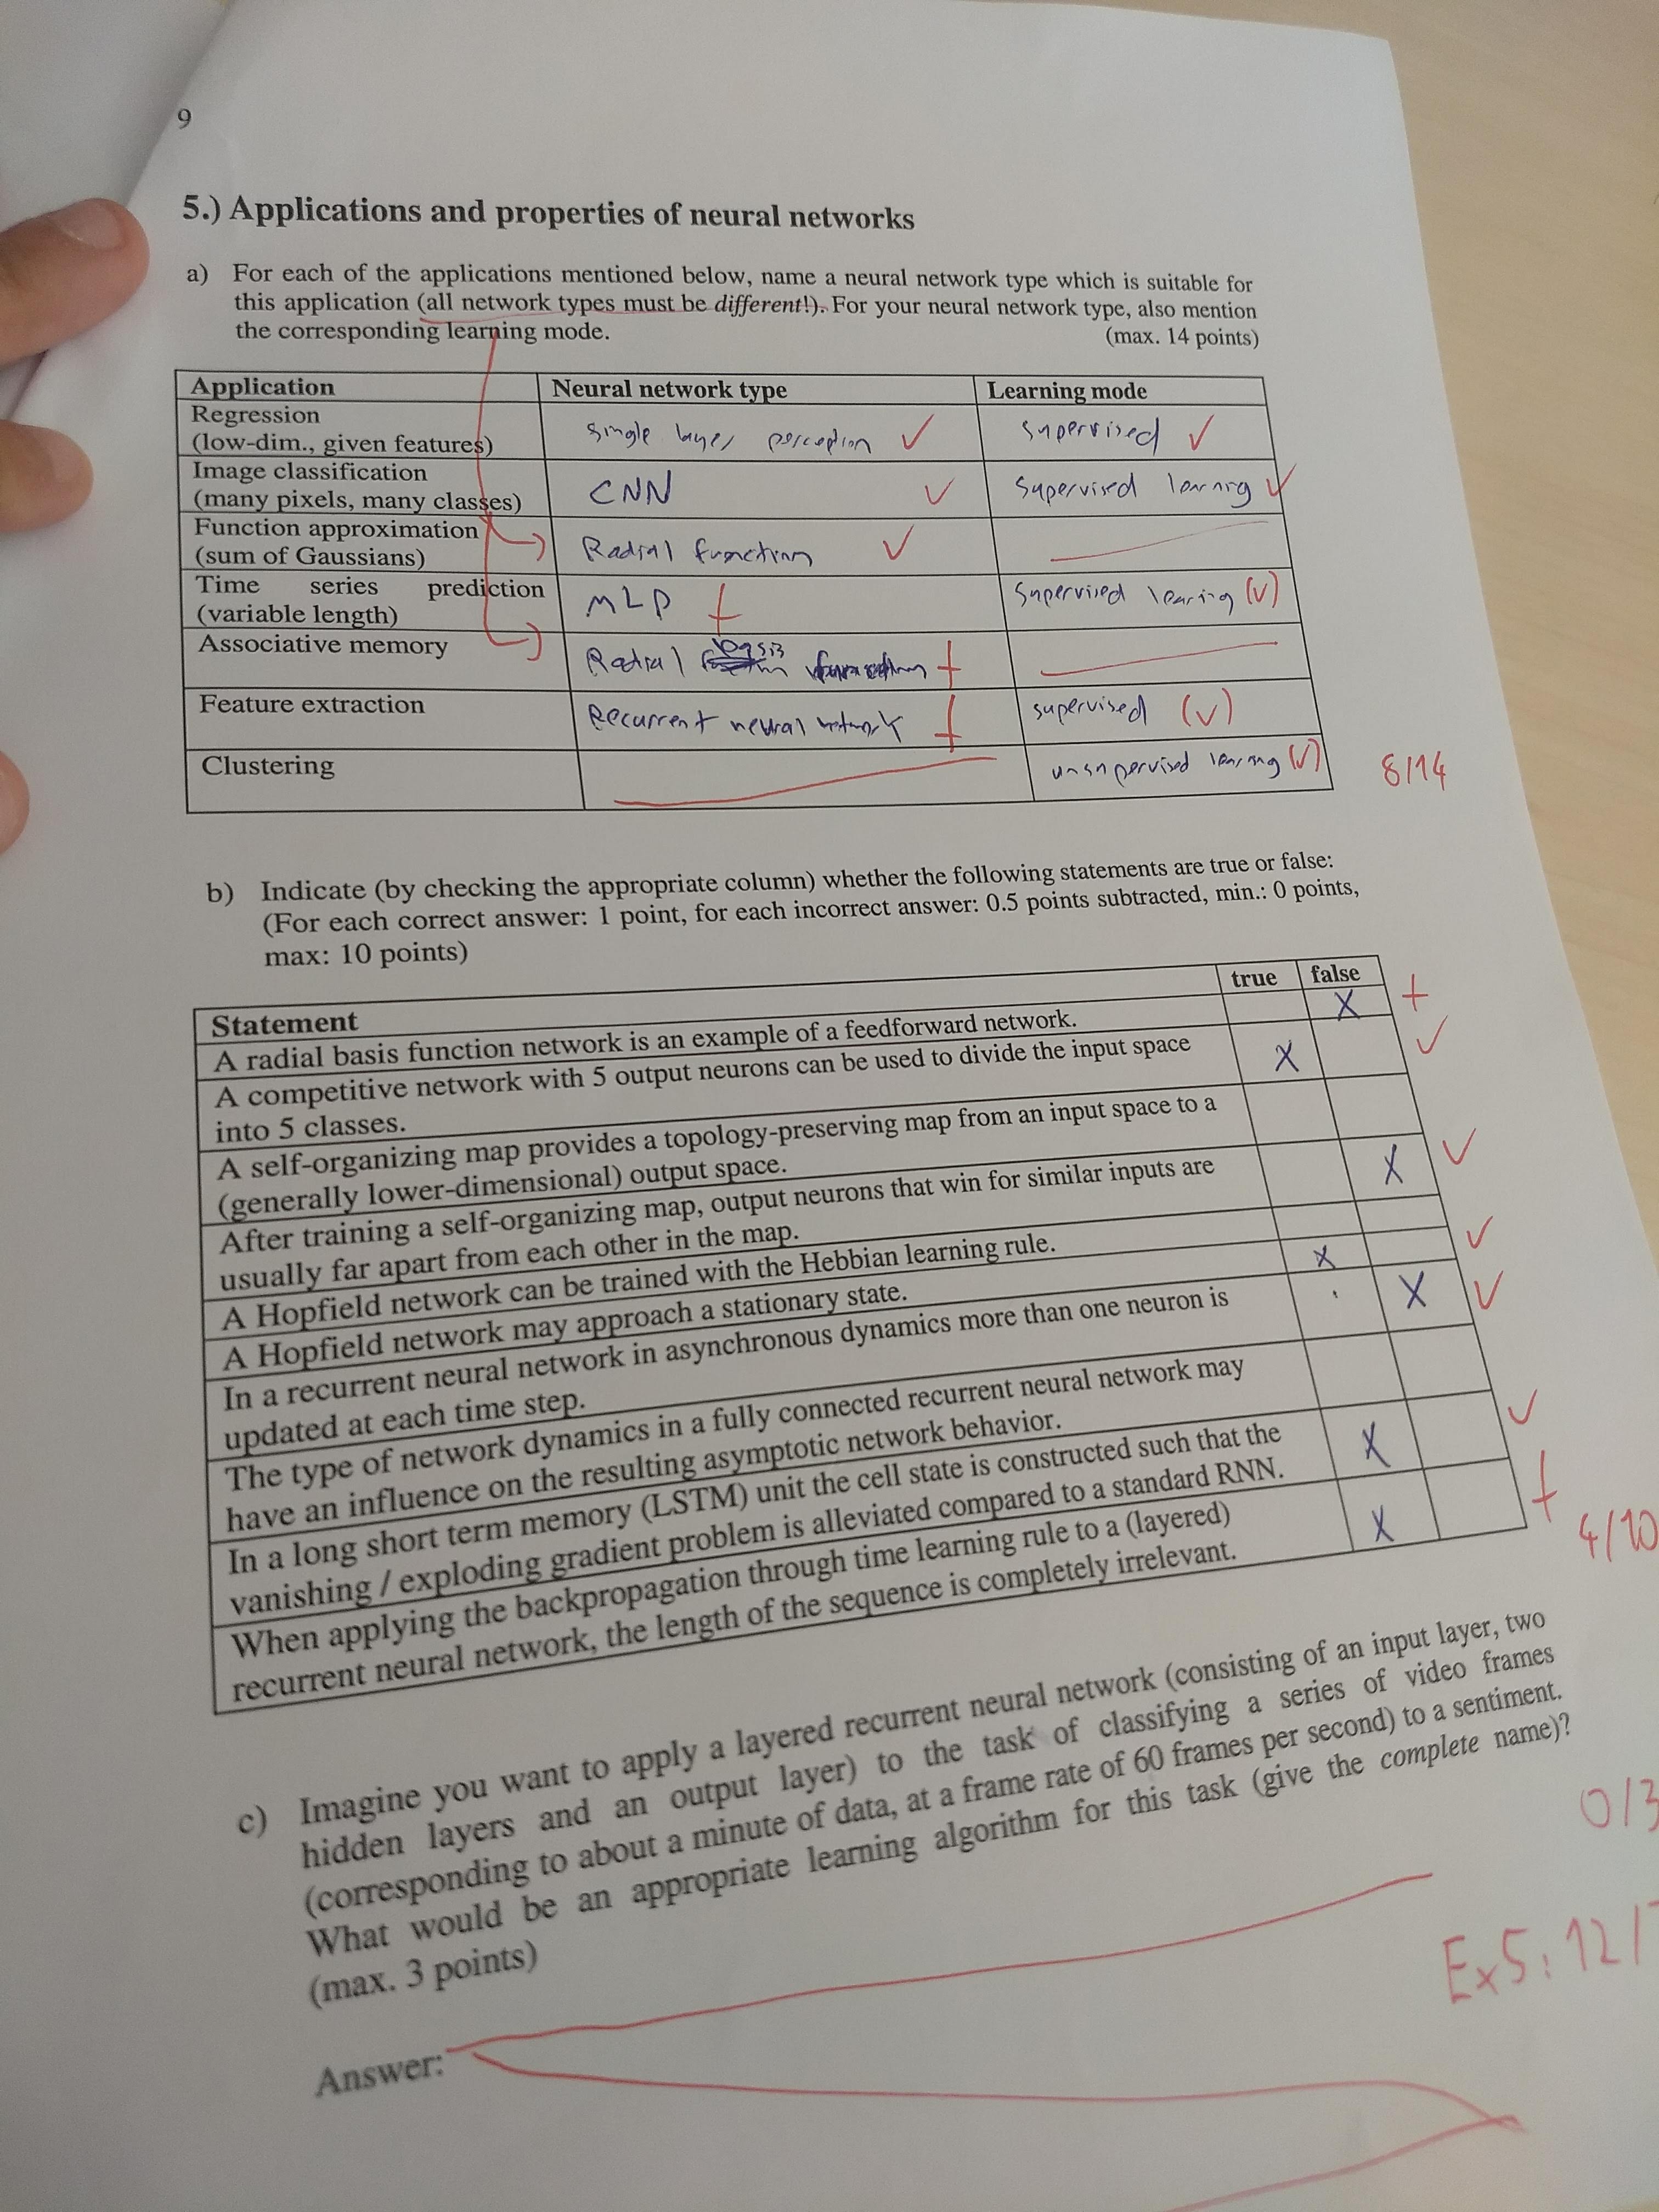 9
5.) Applications and properties of neural networks
a) For each of the applications mentioned below, name a neural network type which is suitable for
this application (all network types must be different!). For your neural network type, also mention
the corresponding learning mode. (max. 14 points)
Application Neural network type Learning mode
Regression
(low-dim., given features) single layer perceptron ✓ supervised ✓
Image classification
(many pixels, many classes) CNN ✓ Supervised learning ✓
Function approximation
(sum of Gaussians) Radial function ✓
Time series prediction
(variable length) MLP Supervised learing (✓)
Associative memory Radial
Feature extraction Recurrent neural network supervised (✓)
Clustering unsupervised learning (✓)
8/14
b) Indicate (by checking the appropriate column) whether the following statements are true or false:
(For each correct answer: 1 point, for each incorrect answer: 0.5 points subtracted, min.: 0 points,
max: 10 points)
Statement true false
A radial basis function network is an example of a feedforward network. X
A competitive network with 5 output neurons can be used to divide the input space
into 5 classes. X ✓
A self-organizing map provides a topology-preserving map from an input space to a
(generally lower-dimensional) output space.
After training a self-organizing map, output neurons that win for similar inputs are
usually far apart from each other in the map. X ✓
A Hopfield network can be trained with the Hebbian learning rule.
A Hopfield network may approach a stationary state. X ✓
In a recurrent neural network in asynchronous dynamics more than one neuron is
updated at each time step. X ✓
The type of network dynamics in a fully connected recurrent neural network may
have an influence on the resulting asymptotic network behavior.
In a long short term memory (LSTM) unit the cell state is constructed such that the
vanishing / exploding gradient problem is alleviated compared to a standard RNN. X ✓
When applying the backpropagation through time learning rule to a (layered)
recurrent neural network, the length of the sequence is completely irrelevant. X
4/10
c) Imagine you want to apply a layered recurrent neural network (consisting of an input layer, two
hidden layers and an output layer) to the task of classifying a series of video frames
(corresponding to about a minute of data, at a frame rate of 60 frames per second) to a sentiment.
What would be an appropriate learning algorithm for this task (give the complete name)?
(max. 3 points)
0/3
Ex5: 12/
Answer: